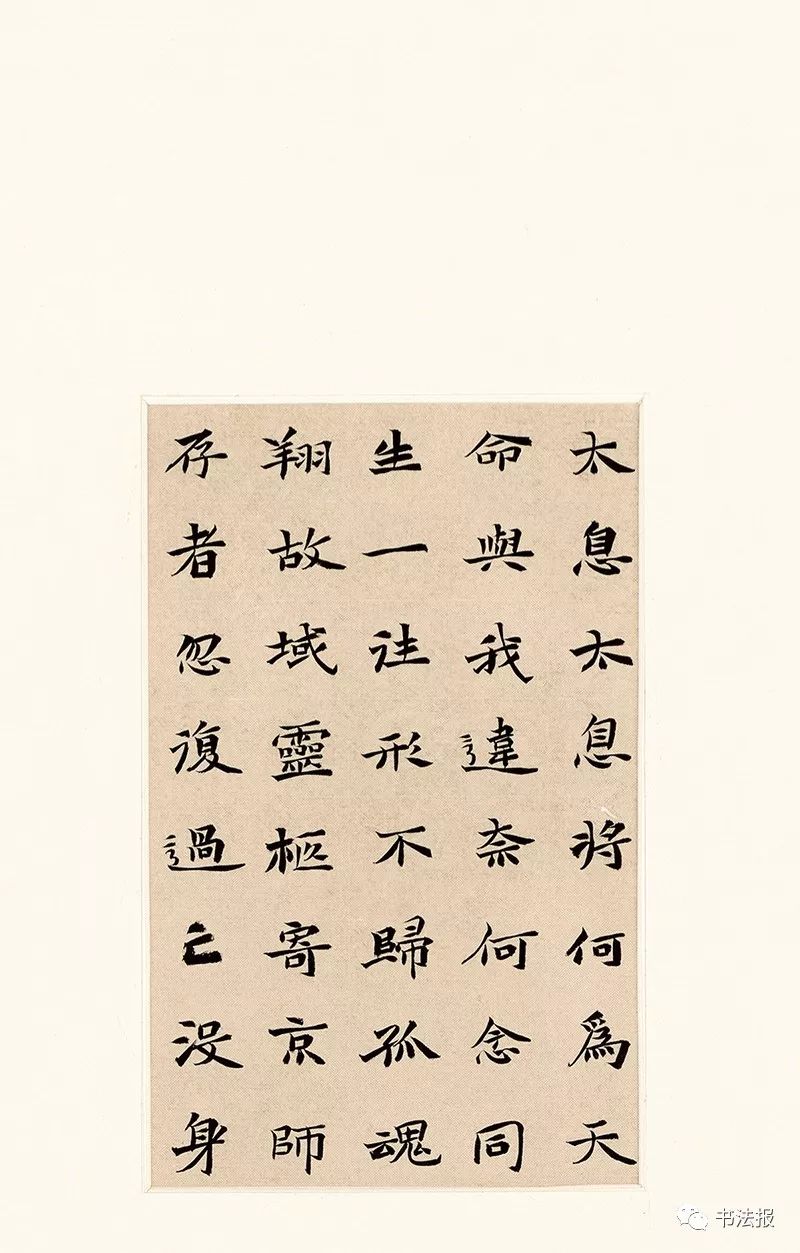 太息太息將何爲天
命與我違奈何念同
生一往形不歸孤魂
翔故域靈柩寄京師
存者忽復過亡沒身
书法报